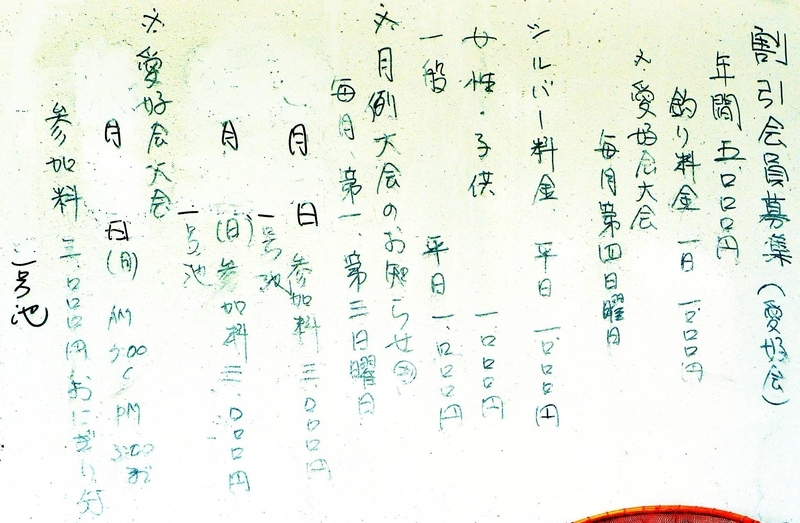 割引会員募集(愛好会)
年間 五〇〇〇円
釣り料金 一日 一、〇〇〇円
※愛好会大会
毎月第四日曜日
シルバー料金 平日 一、〇〇〇円
女性・子供 一、〇〇〇円
一般 平日 一、〇〇〇円
※月例大会のお知らせ
毎月、第一、第三日曜日
月 日 参加料 三、〇〇〇円
一号池
月 (日) 参加料 三、〇〇〇円
一号池
※愛好会大会
月 日(月) AM 5:00 〜 PM 3:00
参加料 三、〇〇〇円 おにぎり
一号池